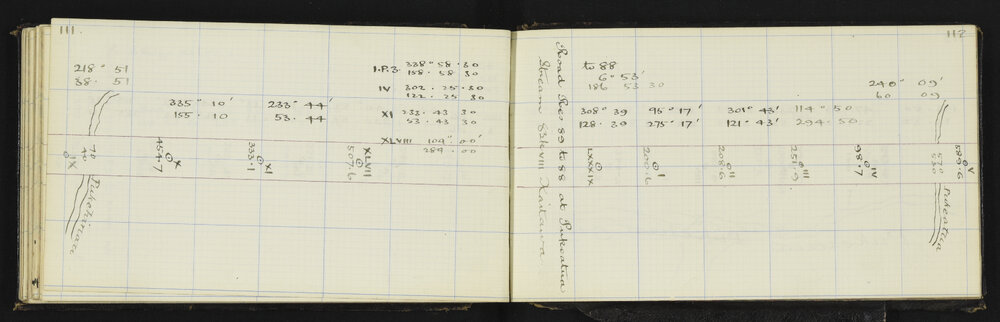 111
218° 51
38. 51
335° 10'
155. 10
233° 44'
53. 44
I.P.3. 338° 58. 30
158. 58. 30
IV 302. 25. 30
122. 25 30
XI 233. 43 30
53. 43 30
XLVIII 104° 00'
284. 00
IX
70
40
X
454.7
XI
333.1
XLVIII
507.6
Pukehinau
112
Road Sec 89 to 88 at Pukeatua
Stream Blk VIII Kaitawa
to 88
6° 53'
186 53 30
240° 09'
60. 09
308° 39
128. 39
95° 17'
275° 17'
301° 43'
121° 43'
114° 50
294. 50
LXXXIX
I
200.6
II
208.6
III
251.9
IV
98.7
V
589.6
530
Pukeatua